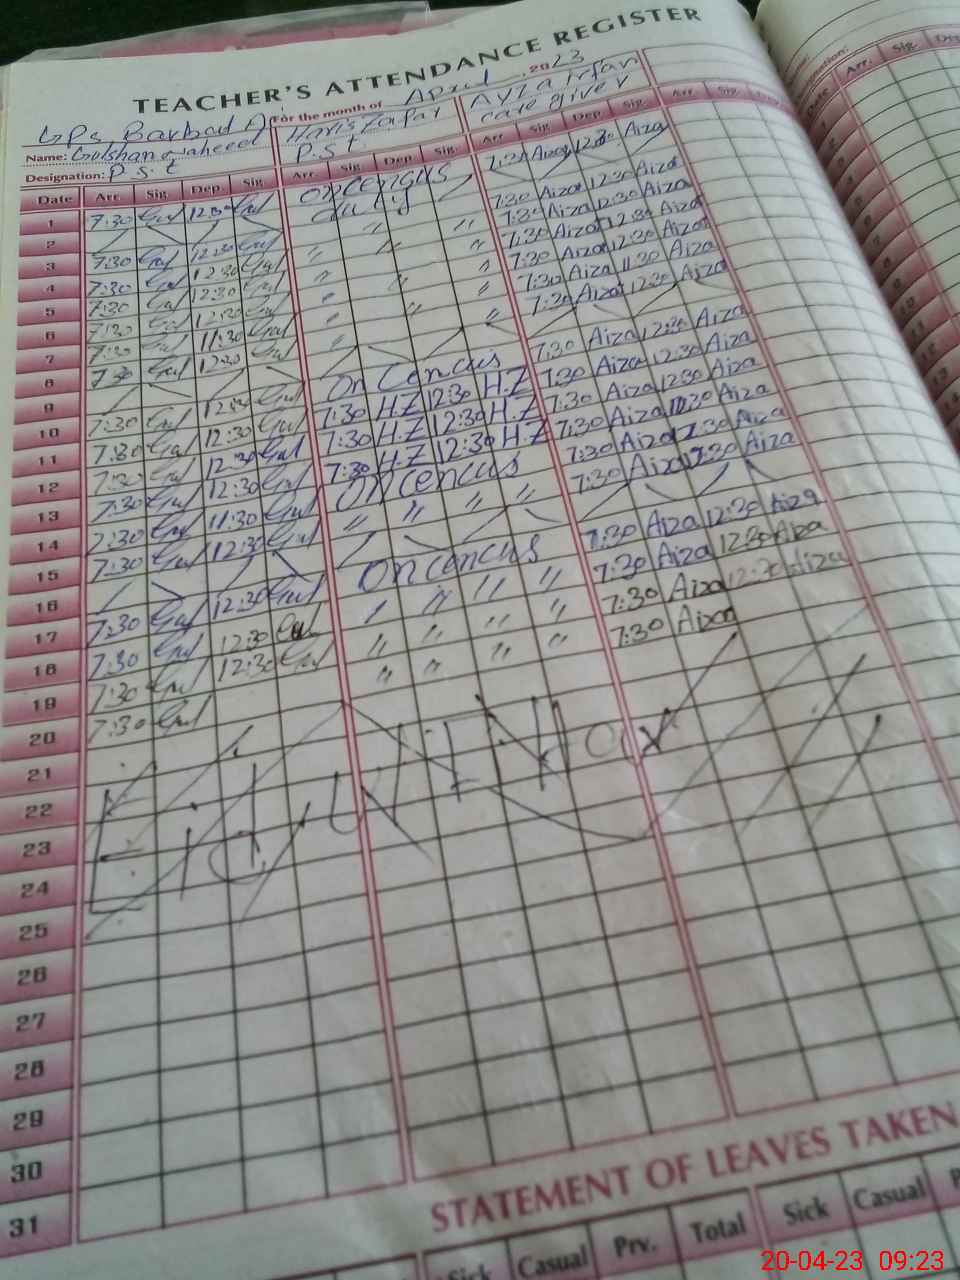 TEACHER'S ATTENDANCE REGISTER
For the month of April 2023
GPS Barbad A
Name: Gulshan Haris Zafar Ayza Irfan
Designation: P.S.t P.S.t care giver
Date Arr. Sig. Dep. Sig. Arr. Sig. Dep. Sig. Arr. Sig. Dep. Sig. Arr. Sig.
1 7:30 Gul 12:30 Gul On Cencus duty 7:30 Aiza 12:30 Aiza
2
3 7:30 Gul 12:30 Gul " " " 7:30 Aiza 12:30 Aiza
4 7:30 Gul 12:30 Gul " " " 7:30 Aiza 12:30 Aiza
5 7:30 Gul 12:30 Gul " " " 7:30 Aiza 12:30 Aiza
6 7:30 Gul 12:30 Gul " " " 7:30 Aiza 12:30 Aiza
7 7:30 Gul 11:30 Gul " " 7:30 Aiza 11:30 Aiza
8 7:30 Gul 12:30 Gul " 7:30 Aiza 12:30 Aiza
9
10 7:30 Gul 12:30 Gul On Cencus 7:30 Aiza 12:30 Aiza
11 7:30 Gul 12:30 Gul 7:30 H.Z 12:30 H.Z 7:30 Aiza 12:30 Aiza
12 7:30 Gul 12:30 Gul 7:30 H.Z 12:30 H.Z 7:30 Aiza 12:30 Aiza
13 7:30 Gul 12:30 Gul 7:30 H.Z 12:30 H.Z 7:30 Aiza 12:30 Aiza
14 7:30 Gul 11:30 Gul On Cencus 7:30 Aiza Aiza
15 7:30 Gul 12:30 Gul " " " " 7:30 Aiza 12:30 Aiza
16
17 7:30 Gul 12:30 Gul On cencus 7:30 Aiza 12:30 Aiza
18 7:30 Gul 12:30 Gul " " " 7:30 Aiza 12:30 Aiza
19 7:30 Gul 12:30 Gul " " " " 7:30 Aiza 12:30 Aiza
20 7:30 Gul " " " " 7:30 Aiza
21
22
23
24
25
26
27
28
29
30
31
STATEMENT OF LEAVES TAKEN
Sick Casual Prv. Total Sick Casual
20-04-23 09:23